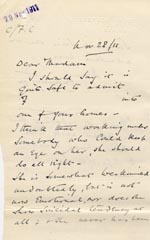 29 NOV 1911
C/F.C
Nov 28/11
Dear Madam
I should say it is
quite safe to admit
into
one of your homes –
I think that working under
somebody who could keep
an eye on her, she should
do all right –
She is somewhat weakminded
undoubtedly, but is not
very emotional, nor does she
show suicidal tendency at
all; & she never has been